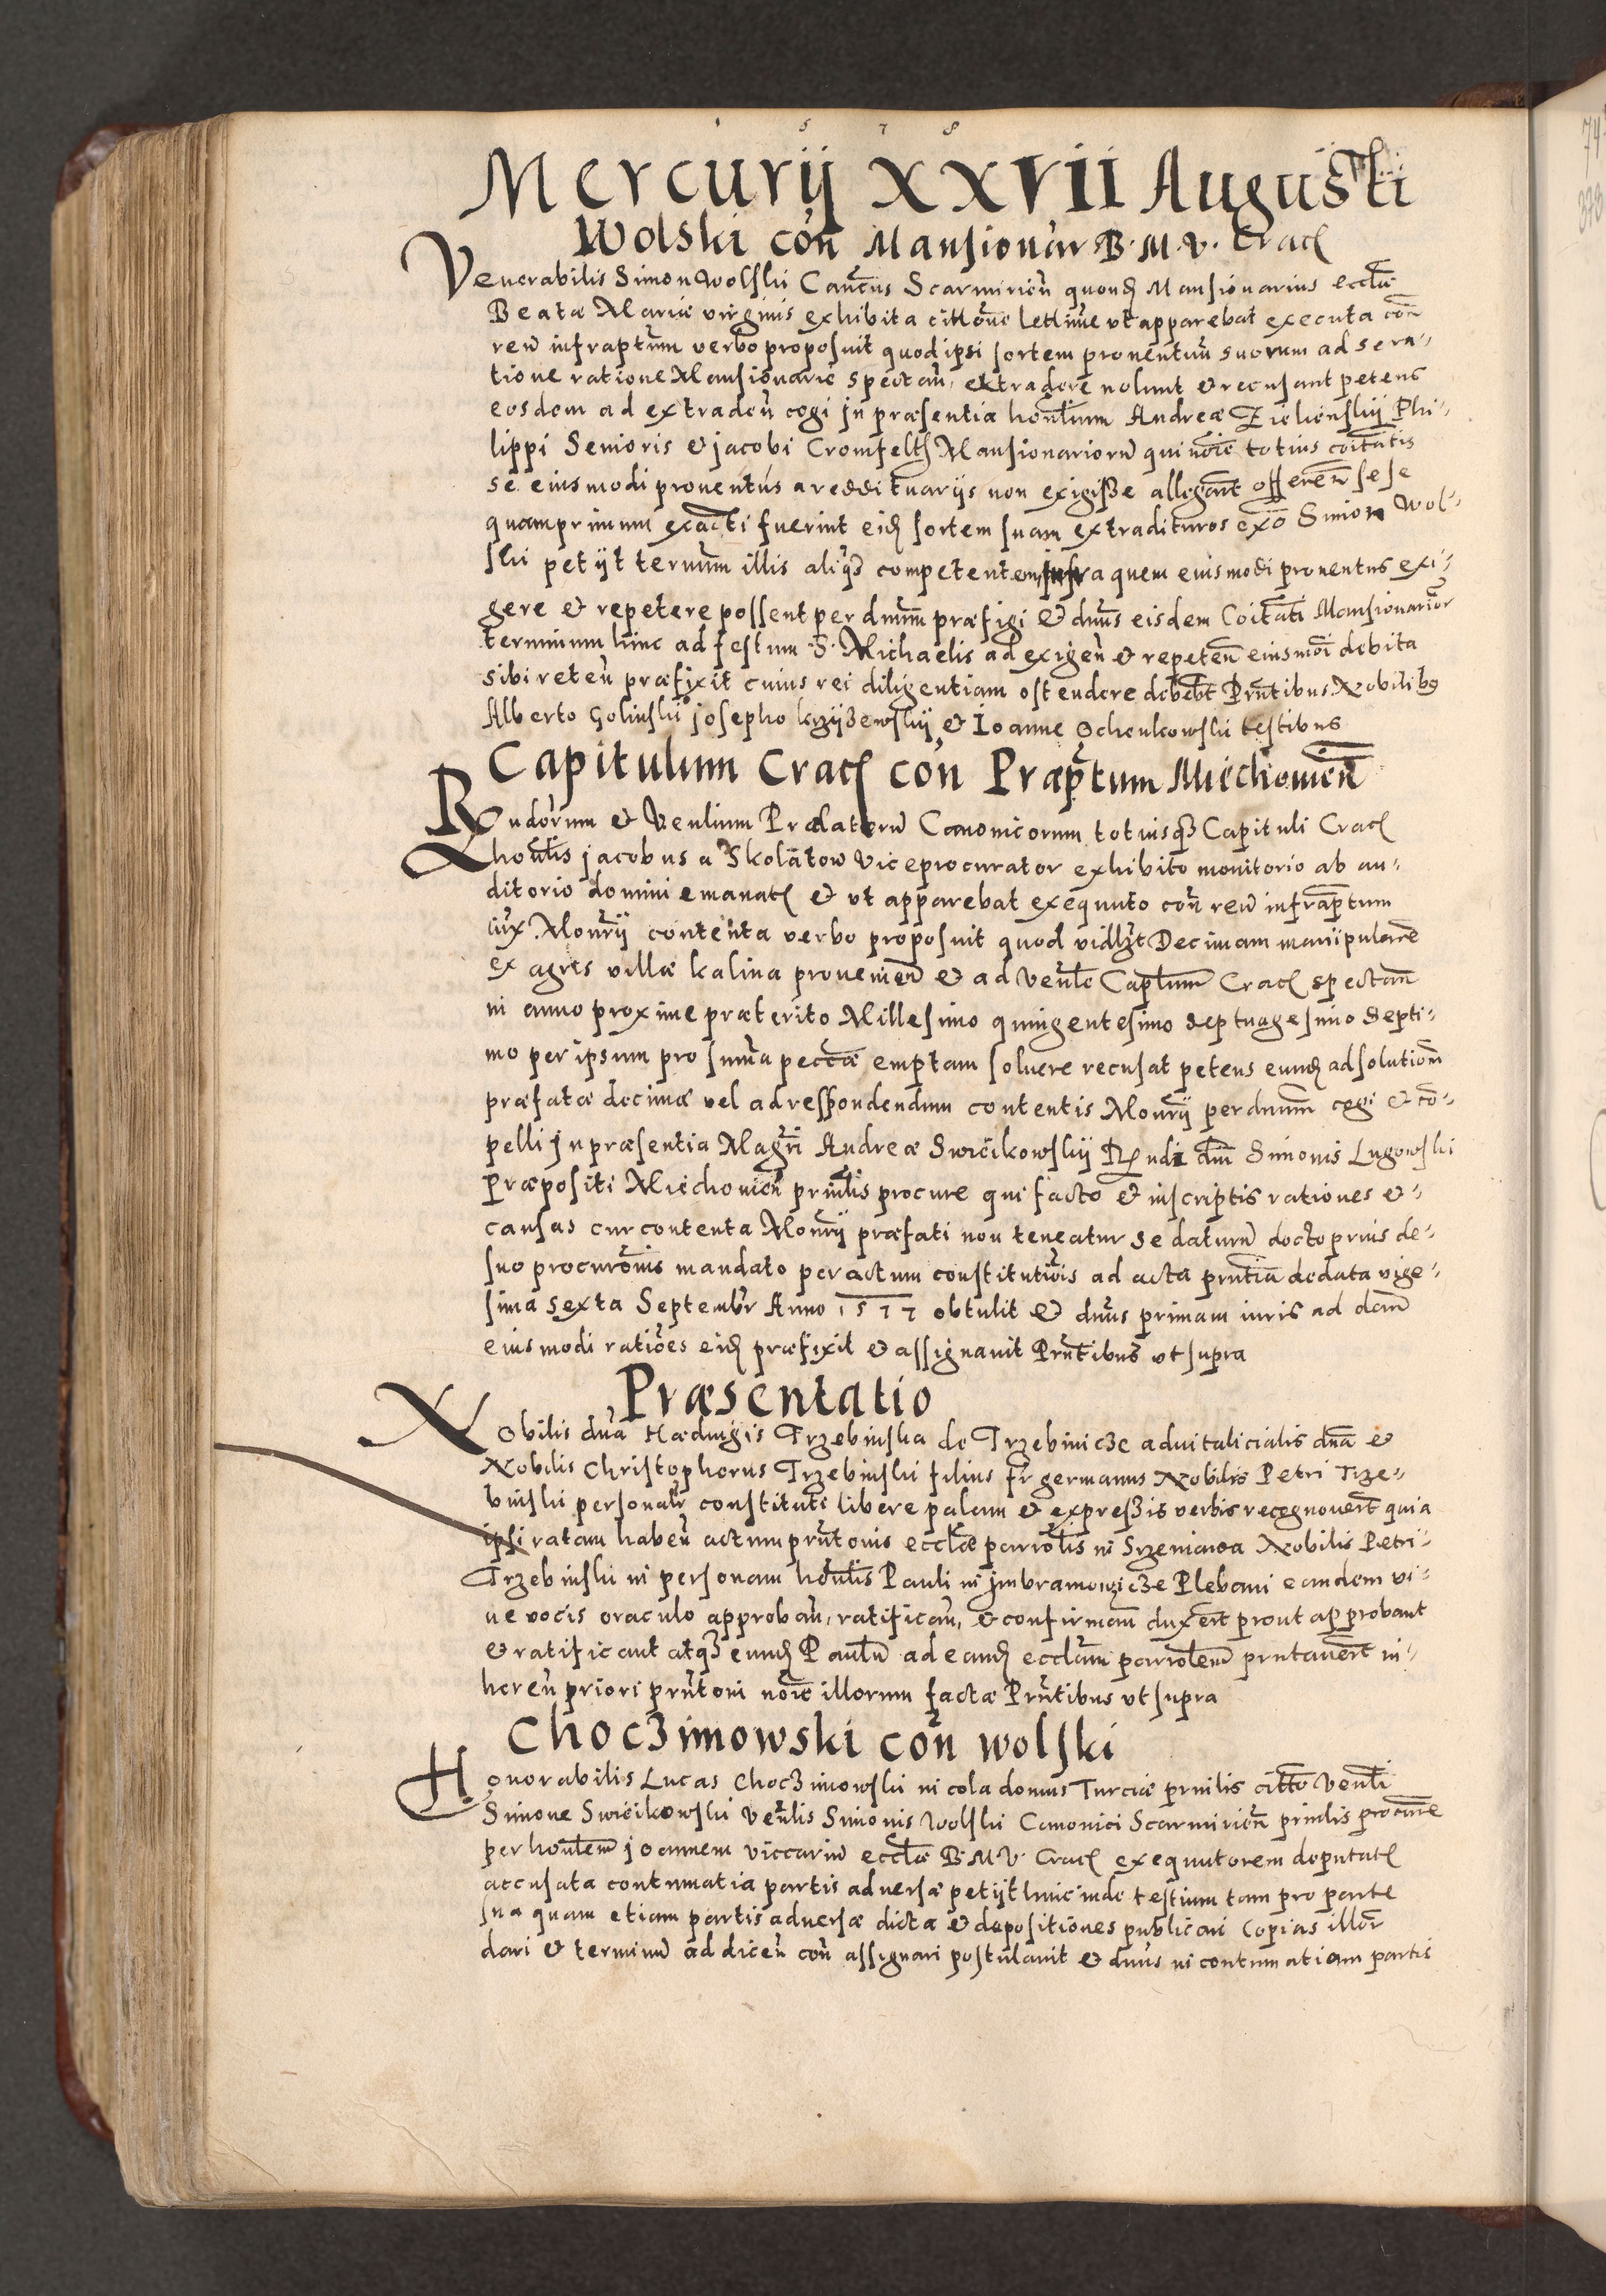 1 5 7 8
Mercurij XXVII Augusti
Wolski con̄ Mansionar B. M. V. Crac
Venerabilis Simon Wolski Canc̄us Scarmirień quond Mansionarius eccl̄ae
Beatæ Mariæ virginis exhibita citt̄one letl̄ime vt apparebat executa con̄
reū infraptum verbo proposuit quod ipsi sortem prouentuū suorum ad sera⸗
tione ratione Mansionarie spectań, extradere nolunt et recusant petens
eosdem ad extradeń cogi jn præsentia honl̄ium Andreæ Zielienskij Phi⸗
lippi Senioris et jacobi Cromfelth Mansionariorū qui nōie totius cōitatis
se eiusmodi prouentus a reddituarijs non exigisse allegant̄ offeren̄ sese
quamprimum exacti fuerint eid sortem suam extradituros exo Simon Wol⸗
ski petijt termum illis aliq̄ competentem infra quem eiusmodi prouentus exi⸗
gere et repetere possent per dnum præfigi et dnus eisdem Coitati Mansionarior
terminum hinc ad festum S. Michaelis ad exigeń et repeteń eiusmōi debita
sibi reteń præfixit cuius rei diligentiam ostendere debebt Prn̄tibus Nobilibus
Alberto Golinski josepho krzyżewskij et Ioanne Ochenkowski testibus
Capitulum Crac con̄ Præptum Miechouień
Rndorum et Venlium Prælatorū Canonicorum totiusq̄ Capituli Crac
honl̄is jacobus a Skolatow viceprocurator exhibito monitorio ab au⸗
ditorio domini emanat et vt apparebat exequuto con̄ reū infraptum
iux Monrij contenta verbo proposuit quod vidlzt Decimam manipularē
ex agris villæ kalina prouenień et ad venle Captlum Crac spectań
in anno proxime præterito Millesimo quingentesimo septuagesimo septi⸗
mo per ipsum pro sum̄a pec̄cæ emptam soluere recusat petens eund ad solution̄
præfatæ decimæ vel ad respondendum contentis Monrij per dnum cogi et cō⸗
pelli jn præsentia Magri Andreæ Swiecikowskij Rndi dn̄i Simonis Lugowski
Præpositi Miechouień prinlis procure qui facto et inscriptis rationes et⸗
causas cur contenta Monrij præfati non teneatur se daturū docto prius de⸗
suo procurōnis mandato per actum constitutiōis ad acta prn̄tia de data vige⸗
sima sexta Septembr Anno 1577 obtulit et dnus primam iuris ad dań
eiusmodi ratiōes eid præfixit et assignauit Prn̄tibus vt supra
Præsentatio
Nobilis dnā Hædwigis Trzebinska de Trzebinicze aduitalicialis dnā et
Nobilis Christophorus Trzebinski filius fr germanus Nobilis Petri Trze⸗
binski personalr constituti libere palam et expressis verbis recognouert quia
ipsi ratam habeń actum prn̄tonis eccl̄æ parrolis in Srzeniawa Nobilis Petri⸗
Trzebinski in personam honl̄is Pauli in jmbramowicze Plebani eandem vi⸗
ue vocis oraculo approbań, ratificań, et confirmań duxert prout approbant
et ratificant atq̄ eund Paulū ad eand eccl̄am parrolem prntauert in⸗
hereń priori prn̄toni nōie illorum factæ Prn̄tibus vt supra
Choczimowski con̄ wolski
Honorabilis Lucas Choczimowski in cola domus Turciæ prnilis citt̄o venli
Simone Swiecikowski venlis Simonis Wolski Canonici Scarmirień prinlis procure
per honlem joannem viccariū eccl̄æ B. M. V. Crac exequutorem deputat
accusata contumatia partis aduersæ petijt huic inde testium tam pro parte
sua quam etiam partis aduersæ dicta et depositiones publicari Copias illor
dari et terminū ad diceń con̄ assignari postulauit et dnus in contumatiam partis